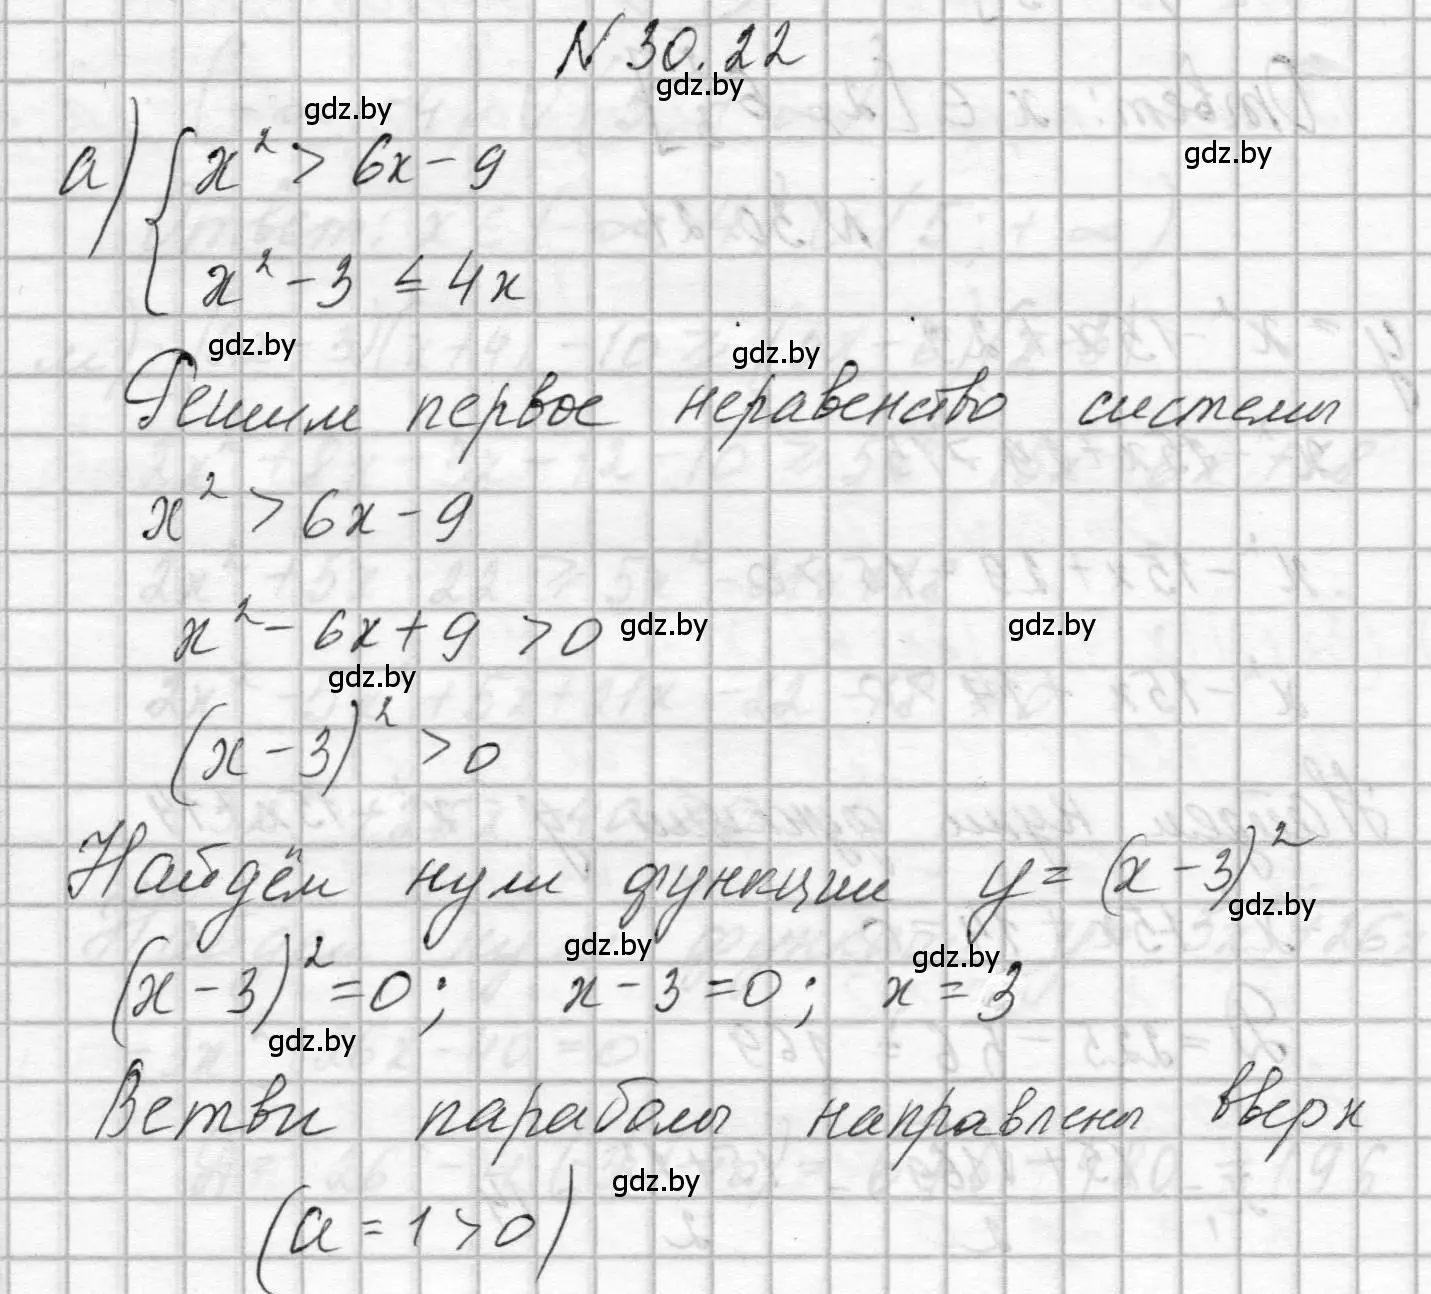 N 30.22
gdz.by
gdz.by
а) { x² > 6x - 9
gdz.by
x² - 3 ≤ 4x
gdz.by
gdz.by
Решим первое неравенство системы
x² > 6x - 9
x² - 6x + 9 > 0
gdz.by
gdz.by
gdz.by
(x - 3)² > 0
Найдём нули функции y = (x - 3)²
gdz.by
gdz.by
gdz.by
(x - 3)² = 0; x - 3 = 0; x = 3
gdz.by
Ветви параболы направлены вверх
gdz.by
(a = 1 > 0)